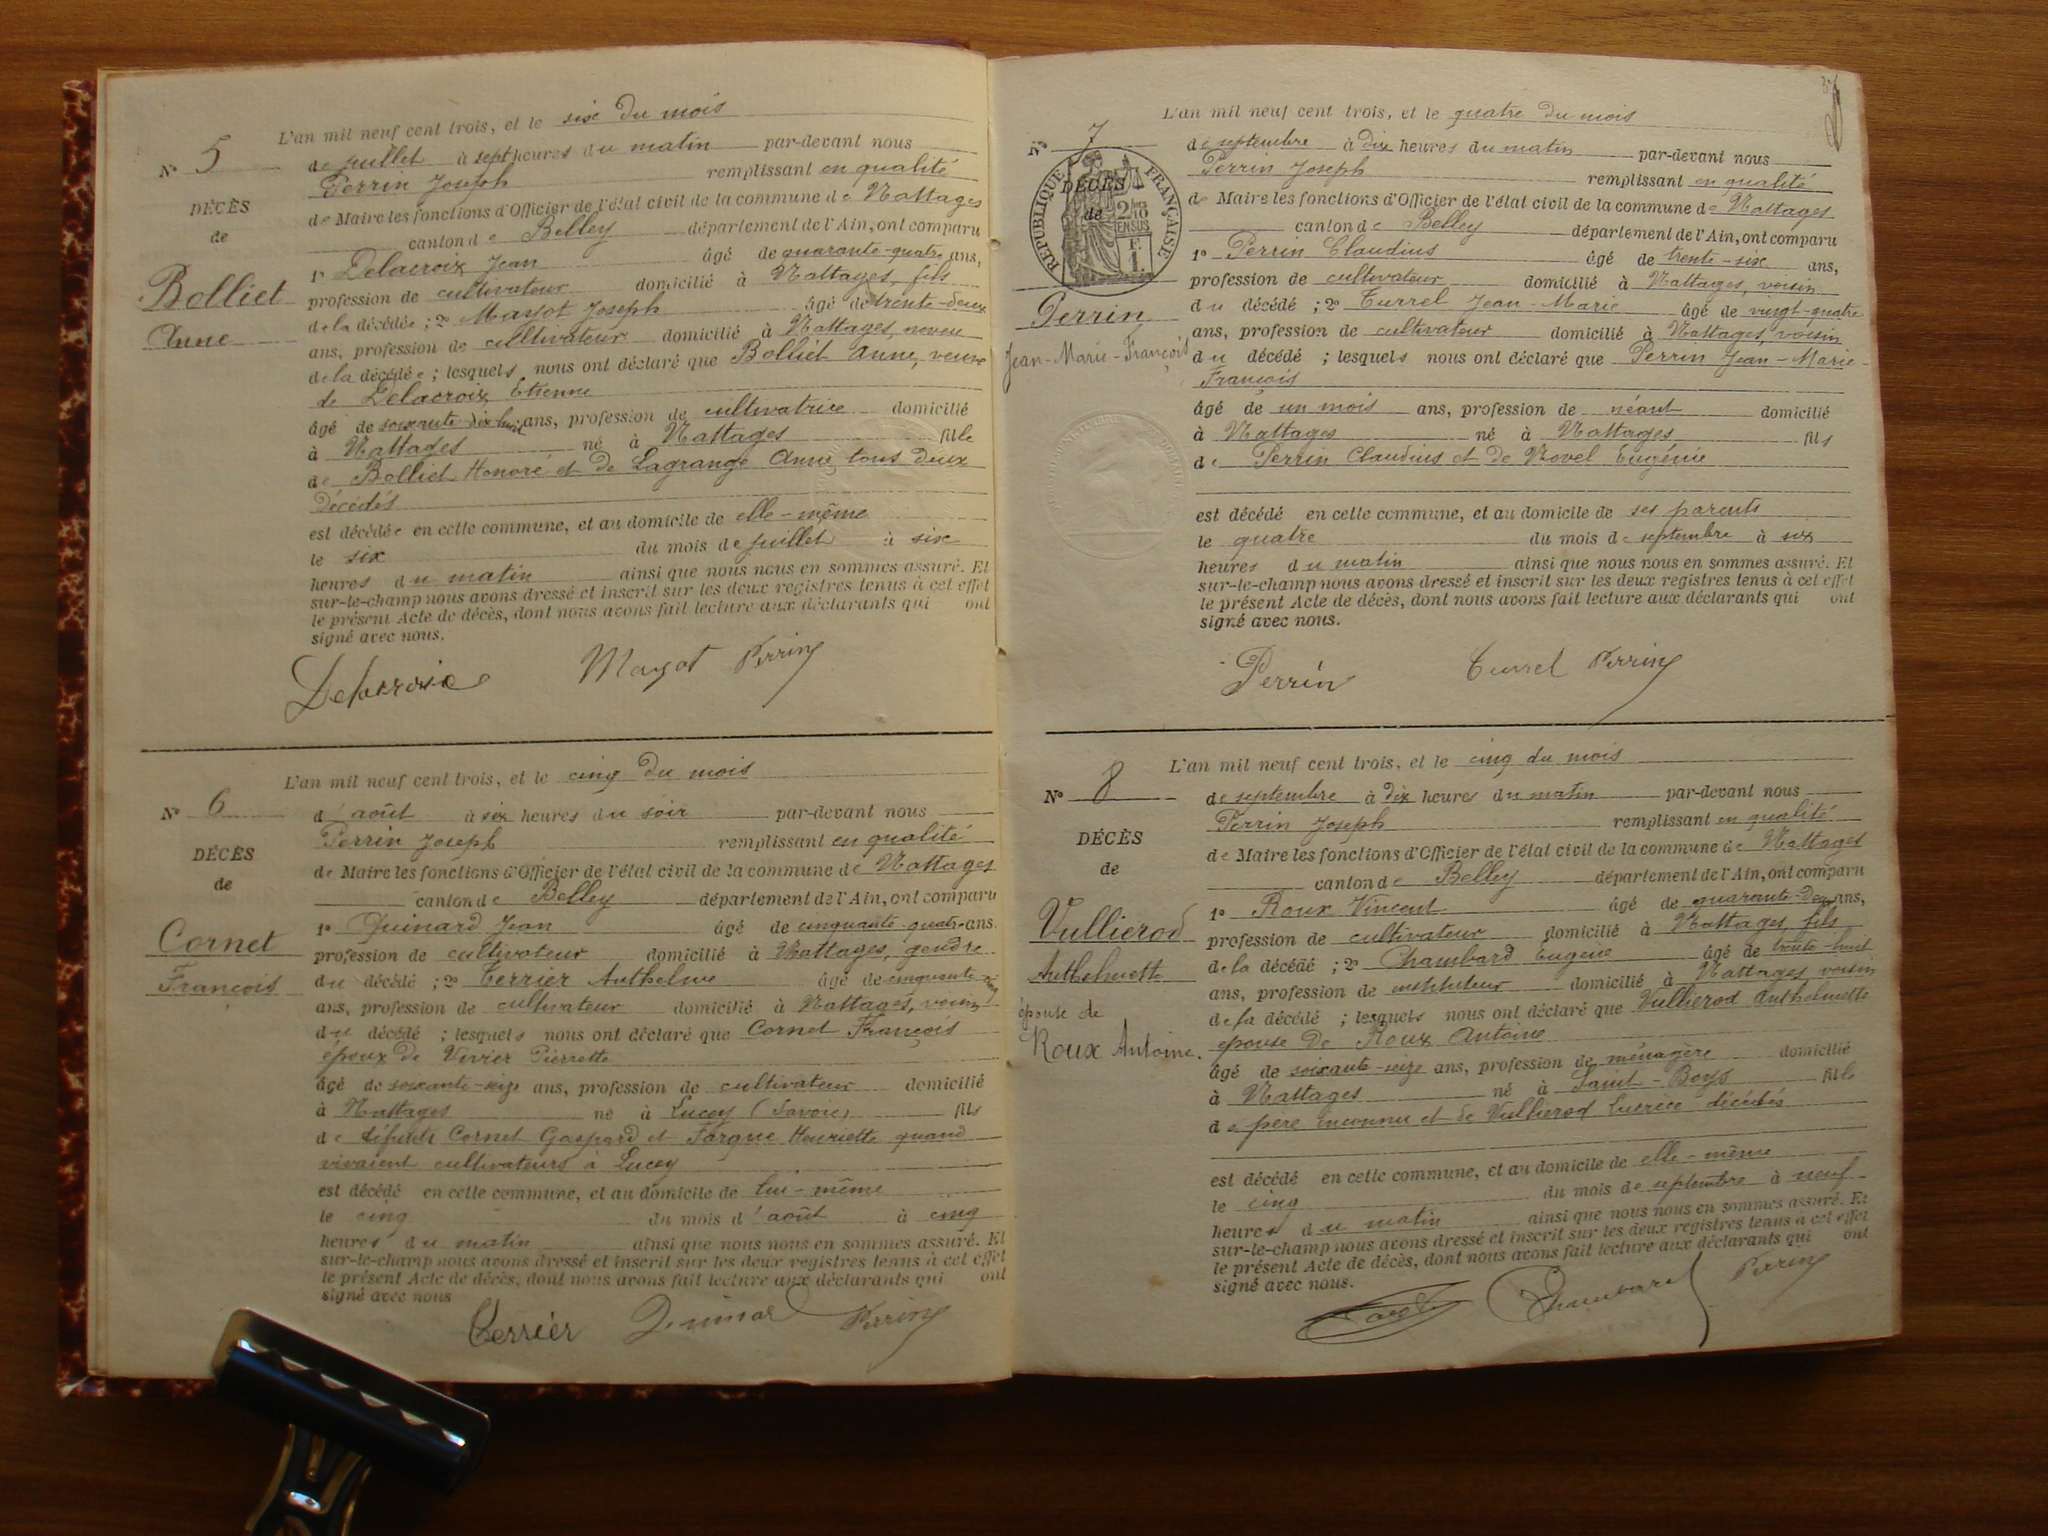 L'an mil neuf cent trois, et le six du mois
N° 5
de juillet à sept heures du matin par-devant nous
Perrin Joseph remplissant en qualité
DÉCÈS
de Maire les fonctions d'Officier de l'état civil de la commune de Nattages
de
canton de Belley département de l'Ain, ont comparu
1° Delacroix Jean âgé de quarante-quatre ans,
Bolliet
profession de cultivateur domicilié à Nattages, fils
de la décédée ; 2° Mayot Joseph âgé de trente-deux
Anne
ans, profession de cultivateur domicilié à Nattages, neveu
de la décédée ; lesquels nous ont déclaré que Bolliet Anne, veuve
de Delacroix Etienne
âgé de soixante dix huit ans, profession de cultivatrice domicilié
à Nattages né à Nattages fille
de Bolliet Honoré et de Lagrange Anne, tous deux
Décédés
est décédée en cette commune, et au domicile de elle-même
le six du mois de juillet à six
heures du matin ainsi que nous nous en sommes assuré. Et
sur-le-champ nous avons dressé et inscrit sur les deux registres tenus à cet effet
le présent Acte de décès, dont nous avons fait lecture aux déclarants qui ont
signé avec nous.
Delacroix Mayot Perrin
L'an mil neuf cent trois, et le cinq du mois
N° 6
d'août à six heures du soir par-devant nous
Perrin Joseph remplissant en qualité
DÉCÈS
de Maire les fonctions d'Officier de l'état civil de la commune de Nattages
de
canton de Belley département de l'Ain, ont comparu
1° Quinard Jean âgé de cinquante-quatre ans
Cornet
profession de cultivateur domicilié à Nattages, gendre
du décédé ; 2° Terrier Anthelme âgé de cinquante
François
ans, profession de cultivateur domicilié à Nattages, voisin
du décédé ; lesquels nous ont déclaré que Cornet François
époux de Vivier Pierrette
âgé de soixante-seize ans, profession de cultivateur domicilié
à Nattages né à Lucey (Savoie) fils
de défunts Cornet Gaspard et Fargue Henriette quand
vivaient cultivateurs à Lucey
est décédé en cette commune, et au domicile de lui-même
le cinq du mois d'août à cinq
heures du matin ainsi que nous nous en sommes assuré. Et
sur-le-champ nous avons dressé et inscrit sur les deux registres tenus à cet effet
le présent Acte de décès, dont nous avons fait lecture aux déclarants qui ont
signé avec nous
Terrier Quinard Perrin
37
L'an mil neuf cent trois, et le quatre du mois
N° 7
de septembre à dix heures du matin par-devant nous
Perrin Joseph remplissant en qualité
DÉCÈS
RÉPUBLIQUE FRANÇAISE
de Maire les fonctions d'Officier de l'état civil de la commune de Nattages
de
2/10 EN SUS
canton de Belley département de l'Ain, ont comparu
F. 1.
1° Perrin Claudius âgé de trente-six ans,
profession de cultivateur domicilié à Nattages, voisin
Perrin
du décédé ; 2° Turrel Jean-Marie âgé de vingt-quatre
ans, profession de cultivateur domicilié à Nattages, voisin
Jean-Marie-François
du décédé ; lesquels nous ont déclaré que Perrin Jean-Marie-
François
âgé de un mois ans, profession de néant domicilié
à Nattages né à Nattages fils
de Perrin Claudius et de Novel Eugénie
est décédé en cette commune, et au domicile de ses parents
le quatre du mois de septembre à six
heures du matin ainsi que nous nous en sommes assuré. Et
sur-le-champ nous avons dressé et inscrit sur les deux registres tenus à cet effet
le présent Acte de décès, dont nous avons fait lecture aux déclarants qui ont
signé avec nous.
Perrin Turrel Perrin
L'an mil neuf cent trois, et le cinq du mois
N° 8
de septembre à dix heures du matin par-devant nous
Perrin Joseph remplissant en qualité
DÉCÈS
de Maire les fonctions d'Officier de l'état civil de la commune de Nattages
de
canton de Belley département de l'Ain, ont comparu
1° Roux Vincent âgé de quarante-deux ans,
Vullierod
profession de cultivateur domicilié à Nattages, fils
de la décédé ; 2° Chambard Eugène âgé de trente-huit
Anthelmette
ans, profession de instituteur domicilié à Nattages, voisin
épouse de
de la décédé ; lesquels nous ont déclaré que Vullierod Anthelmette
Roux Antoine.
épouse de Roux Antoine
âgé de soixante-seize ans, profession de ménagère domicilié
à Nattages né à Saint-Boys fille
de père inconnu et de Vullierod décédés
est décédé en cette commune, et au domicile de elle-même
le cinq du mois de septembre à neuf
heures du matin ainsi que nous nous en sommes assuré. Et
sur-le-champ nous avons dressé et inscrit sur les deux registres tenus à cet effet
le présent Acte de décès, dont nous avons fait lecture aux déclarants qui ont
signé avec nous.
Chambard Perrin